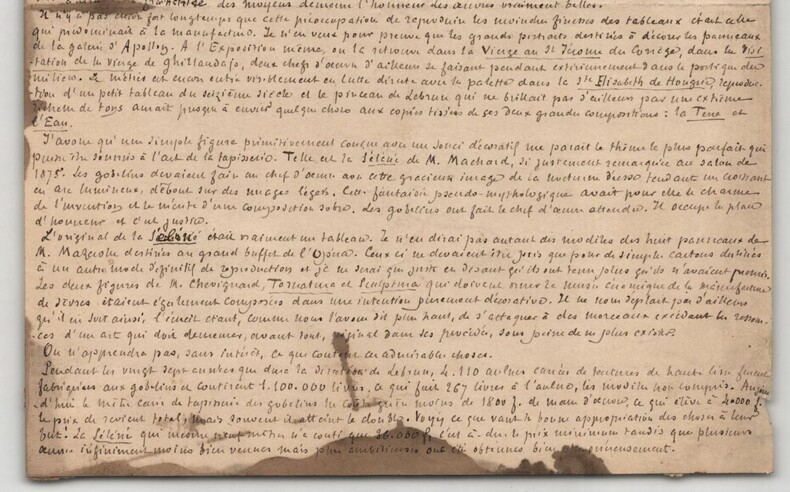 des moyens demeure l'honneur des œuvres vraiment belles.
Il n'y a pas encore fort longtemps que cette préoccupation de reproduire les moindres finesses des tableaux était celle
qui prédominait à la manufacture. Je n'en veux pour preuve que les grands portraits destinés à décorer les panneaux
de la galerie d'Apollon. A l'Exposition même, on la retrouve dans la Vierge au St Jérome du Corrège, dans la Visi-
tation de la vierge de Ghirlandajo, deux chefs d'œuvre d'ailleurs se faisant pendant extérieurement dans le portique du
milieu. Le métier est encore entré visiblement en lutte directe avec la palette dans la Ste Elisabeth de Hongrie, reproduc-
tion d'un petit tableau du seizième siècle et le pinceau de Lebrun qui ne brillait pas d'ailleurs par une extrême
de tons aurait presque à envier quelque chose aux copies tissées de ses deux grandes compositions : la Terre et
l'Eau.
J'avoue qu'une simple figure primitivement conçue avec un souci décoratif me parait le thème le plus parfait qui
puisse être soumis à l'art de la tapisserie. Telle est la Séléné de M. Machard, si justement remarquée au salon de
1875. Les gobelins devaient faire un chef d'œuvre avec cette gracieuse image de la nocturne déesse tendant un croissant
en arc lumineux, debout sur des nuages légers. Cette fantaisie pseudo-mythologique avait pour elle le charme
de l'invention et le mérite d'une composition sobre. Les gobelins ont fait le chef d'œuvre attendu. Il occupe la place
d'honneur et c'est justice.
L'original de la Séléné était vraiment un tableau. Je n'en dirai pas autant des modèles des huit panneaux de
M. Mazerolle destinés au grand buffet de l'Opéra. Ceux ci ne devaient être pris que pour de simples cartons destinés
à un autre mode définitif de reproduction et je ne serai que juste en disant qu'ils ont tenu plus qu'ils n'avaient promis.
Les deux figures de M. Chevignard, Tornatura et Sculptura qui doivent orner le musée céramique de la manufacture
de Sèvres étaient également composées dans une intention purement décorative. Il ne nous déplait pas d'ailleurs
qu'il en soit ainsi, l'écueil étant, comme nous l'avons dit plus haut, de s'attaquer à des morceaux excédant les ressour-
ces d'un art qui doit demeurer, avant tout, original dans ses procédés, sous peine de ne plus exister.
On n'apprendra pas, sans intérêt, ce que coutent ces admirables choses.
Pendant les vingt sept années que dura la direction de Lebrun, 4.110 aulnes carrées de tentures de haute lisse furent
fabriquées aux gobelins et coutèrent 1.100.000 livres, ce qui fait 267 livres à l'aulne, les modèles non compris. Aujour-
d'hui le mètre carré de tapisserie des gobelins ne coute guère moins de 1800 f. de main d'œuvre, ce qui élève à 2000 f.
le prix de revient total, mais souvent il atteint le double. Voyez ce que vaut la bonne appropriation des choses à leur
but. La Séléné qui mesure neuf mètres n'a couté que 36.000 f, c'est à dire le prix minimum tandis que plusieurs
œuvres infiniment moins bien venues mais plus ambitieuses ont été obtenues bien onéreusement.